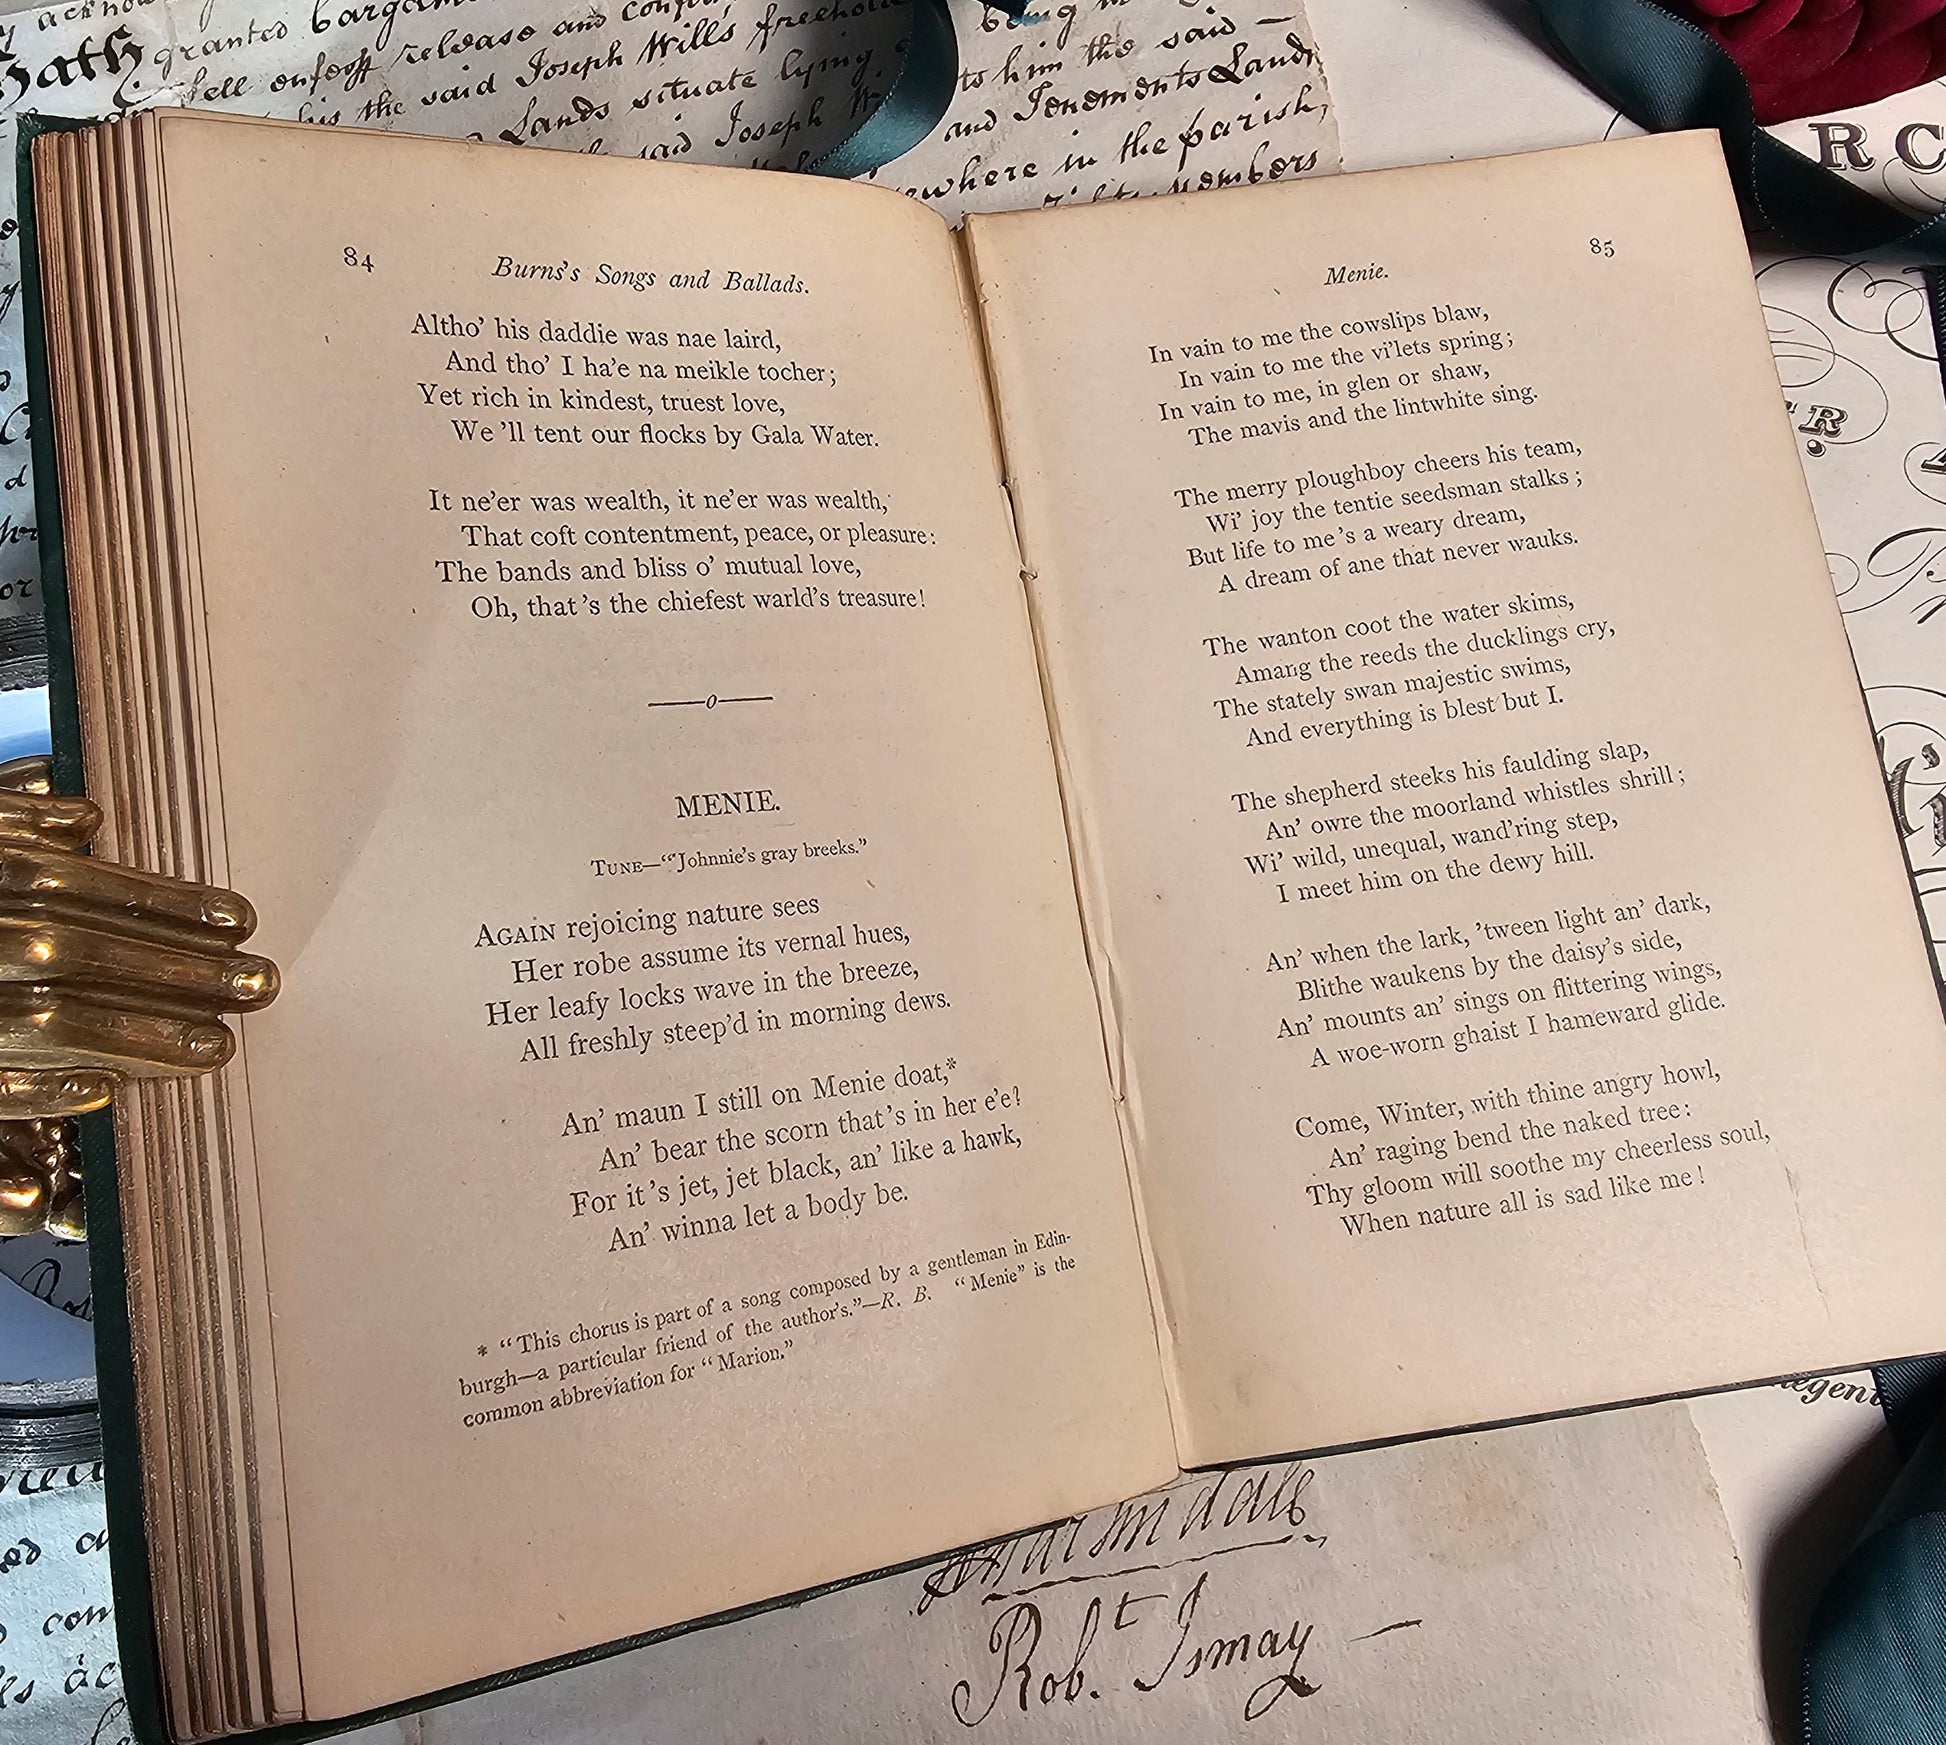 granted
release and
sell enfeoff
his the said Joseph Will's freehold
Lands situate lying
said Joseph
to him the said —
and Tenements Lands
where in the parish,
Members
84
Burns's Songs and Ballads.
Altho' his daddie was nae laird,
And tho' I ha'e na meikle tocher;
Yet rich in kindest, truest love,
We 'll tent our flocks by Gala Water.
It ne'er was wealth, it ne'er was wealth,
That coft contentment, peace, or pleasure:
The bands and bliss o' mutual love,
Oh, that's the chiefest warld's treasure!
MENIE.
TUNE—"Johnnie's gray breeks."
AGAIN rejoicing nature sees
Her robe assume its vernal hues,
Her leafy locks wave in the breeze,
All freshly steep'd in morning dews.
An' maun I still on Menie doat,*
An' bear the scorn that's in her e'e?
For it's jet, jet black, an' like a hawk,
An' winna let a body be.
* "This chorus is part of a song composed by a gentleman in Edin-
burgh—a particular friend of the author's."—R. B. "Menie" is the
common abbreviation for "Marion."
85
Menie.
In vain to me the cowslips blaw,
In vain to me the vi'lets spring;
In vain to me, in glen or shaw,
The mavis and the lintwhite sing.
The merry ploughboy cheers his team,
Wi' joy the tentie seedsman stalks;
But life to me's a weary dream,
A dream of ane that never wauks.
The wanton coot the water skims,
Amang the reeds the ducklings cry,
The stately swan majestic swims,
And everything is blest but I.
The shepherd steeks his faulding slap,
An' owre the moorland whistles shrill;
Wi' wild, unequal, wand'ring step,
I meet him on the dewy hill.
An' when the lark, 'tween light an' dark,
Blithe waukens by the daisy's side,
An' mounts an' sings on flittering wings,
A woe-worn ghaist I hameward glide.
Come, Winter, with thine angry howl,
An' raging bend the naked tree:
Thy gloom will soothe my cheerless soul,
When nature all is sad like me!
Robt. Ismay —